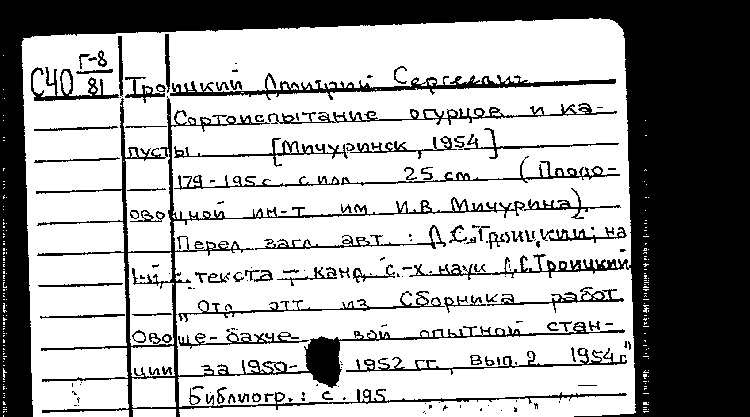 С40 Г-8/81
Троицкий, Дмитрий Сергеевич
Сортоиспытание огурцов и ка-
пусты. [Мичуринск, 1954]
179-195 с. с илл. 25 см. (Плодо-
овощной ин-т им. И.В. Мичурина).
Перед загл. авт.: Д.С. Троицкий; на
1-й с. текста - канд. с.-х. наук Д.С. Троицкий.
"Отд. отт. из Сборника работ
Овоще-бахче вой опытной стан-
ции за 1950- 1952 гг., вып. 2 1954 г."
Библиогр.: с. 195